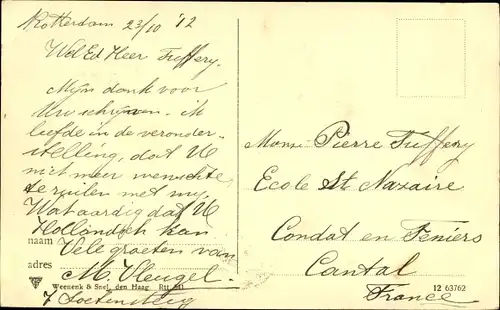 Rotterdam 23/10 '12
Wel Ed Heer Tuffery.
Mijn dank voor
Uw schrijven. ik
leefde in de veronder-
stelling, dat UE
niet meer wenschte
te ruilen met mij.
Wat aardig dat UE
Hollandsch kan
naam Vele groeten van
adres M. Vleugel.
Weenenk & Snel, den Haag Rtt 541
7
Monsr Pierre Tuffery
Ecole St Nazaire
Condat en Feniers
Cantal
France
12 63762